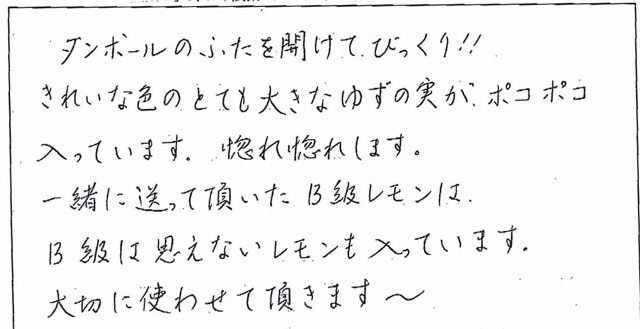 ダンボールのふたを開けてびっくり!!
きれいな色のとても大きなゆずの実が、ポコポコ
入っています。惚れ惚れします。
一緒に送って頂いたB級レモンは、
B級は思えないレモンも入っています。
大切に使わせて頂きます〜